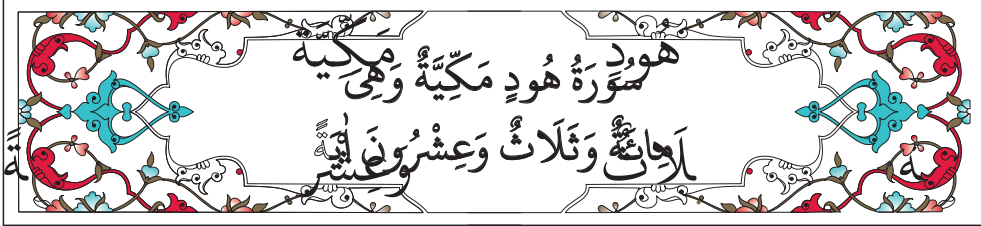 سُورَةُ هُودٍ مَكِّيَّةٌ وَهِىَ
مِائَةٌ وَثَلَاثٌ وَعِشْرُونَ اٰيَةً